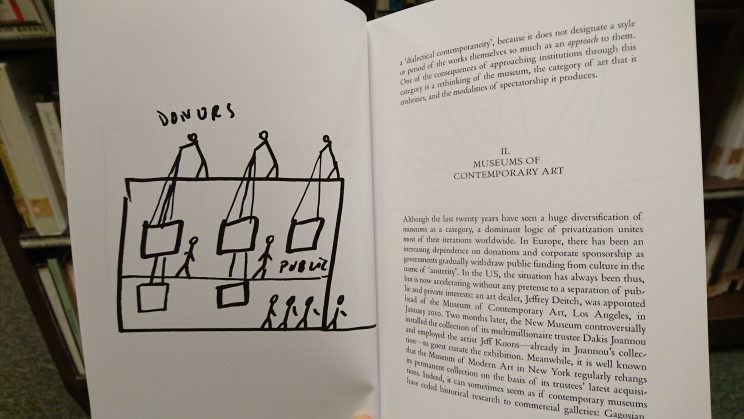 DONORS
PUBLIC
a 'dialectical contemporaneity', because it does not designate a style
or period of the works themselves so much as an approach to them.
One of the consequences of approaching institutions through this
category is a rethinking of the museum, the category of art that it
enshrines, and the modalities of spectatorship it produces.
II.
MUSEUMS OF
CONTEMPORARY ART
Although the last twenty years have seen a huge diversification of
museums as a category, a dominant logic of privatization unites
most of their iterations worldwide. In Europe, there has been an
increasing dependence on donations and corporate sponsorship as
governments gradually withdraw public funding from culture in the
name of 'austerity'. In the US, the situation has always been thus,
but is now accelerating without any pretense to a separation of pub-
lic and private interests: an art dealer, Jeffrey Deitch, was appointed
head of the Museum of Contemporary Art, Los Angeles, in
January 2010. Two months later, the New Museum controversially
installed the collection of its multimillionaire trustee Dakis Joannou
and employed the artist Jeff Koons—already in Joannou's collec-
tion—to guest curate the exhibition. Meanwhile, it is well known
that the Museum of Modern Art in New York regularly rehangs
its permanent collection on the basis of its trustees' latest acquisi-
tions. Indeed, it can sometimes seem as if contemporary museums
have ceded historical research to commercial galleries: Gagosian